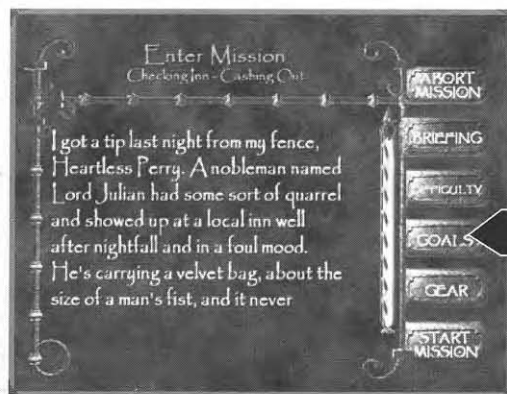 Enter Mission
Checking Inn - Cashing Out
I got a tip last night from my fence,
Heartless Perry. A nobleman named
Lord Julian had some sort of quarrel
and showed up at a local inn well
after nightfall and in a foul mood.
He's carrying a velvet bag, about the
size of a man's fist, and it never
ABORT
MISSION
BRIEFING
DIFFICULTY
GOALS
GEAR
START
MISSION